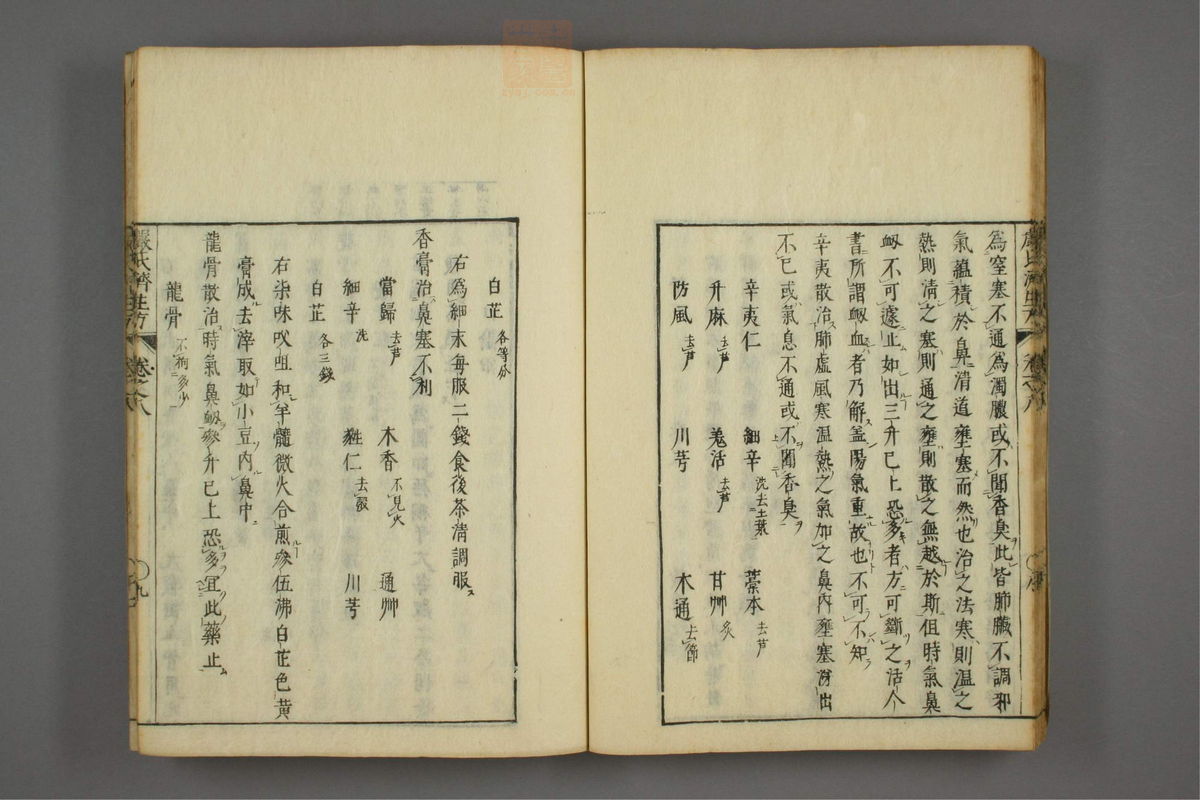 為窒塞不通為濁膿或不聞香臭此皆肺臟不調邪
氣蘊積於鼻清道壅塞而然也治之法寒則温之
熱則清之塞則通之壅則散之無越於斯但時氣鼻
衂不可遽止如出三升已上恐多者方可斷之活人
書所謂衂血者乃解盖陽氣重故也不可不知
辛夷散治肺虚風寒温熱之氣加之鼻内壅塞涕出
不已或氣息不通或不聞香臭
辛夷仁 細辛洗去土葉 藁本去芦
升麻去芦 羌活去芦 甘艸炙
防風去芦 川芎 木通去節
白芷各等分
右為細末每服二錢食後茶清調服
香膏治鼻塞不利
當歸去芦 木香不見火 通艸
細辛洗 蕤仁去殼 川芎
白芷各三錢
右柒味㕮咀和羊髓微火合煎參伍沸白芷色黄
膏成去滓取如小豆内鼻中
龍骨散治時氣鼻衂參升已上恐多宜此藥止
龍骨不拘多少
嚴氏濟生方 卷之八